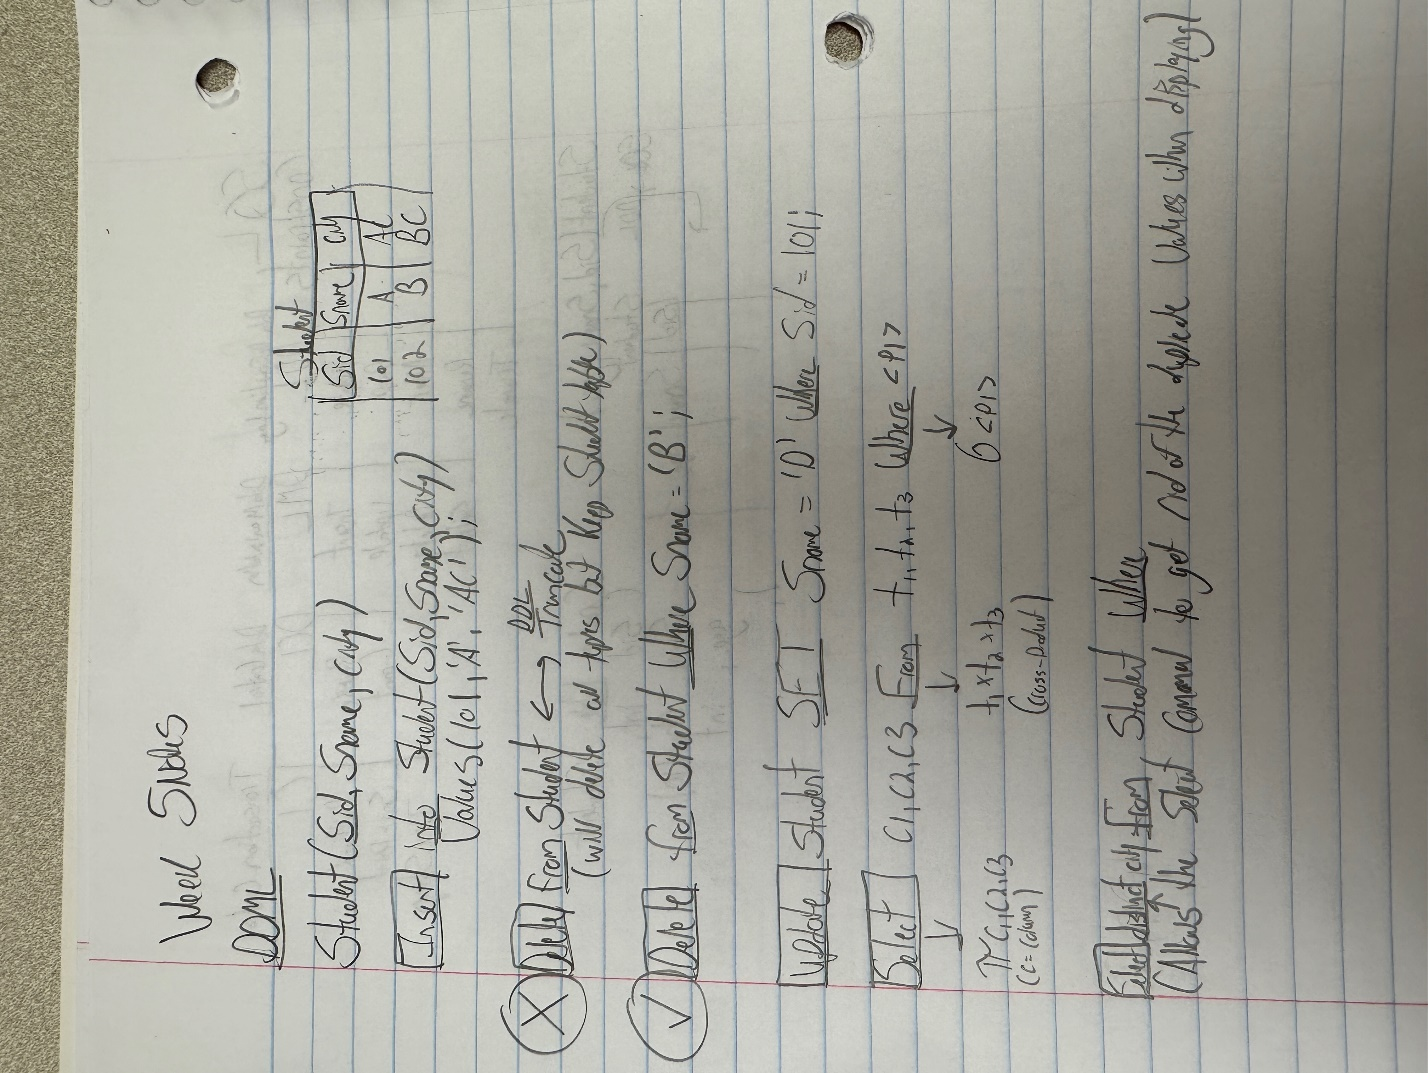 Week 5 notes
DML
Student
Student(Sid, Sname, City)
Sid Sname City
101 A AC
102 B BC
Insert into Student(Sid, Sname, City)
Values(101, 'A', 'AC');
X Delete From Student ↔ DDL Truncate
(will delete all tuples but keep Student table)
✓ Delete from Student Where Sname = 'B';
Update Student SET Sname = 'D' Where Sid = 101;
Select C1, C2, C3 From t1, t2, t3 Where <P1>
↓ ↓ ↓
π C1, C2, C3 t1 × t2 × t3 σ <P1>
(C = Column) (Cross-Product)
Select distinct city from Student Where
(Allows the Select Command to get rid of the duplicate Values when displaying)